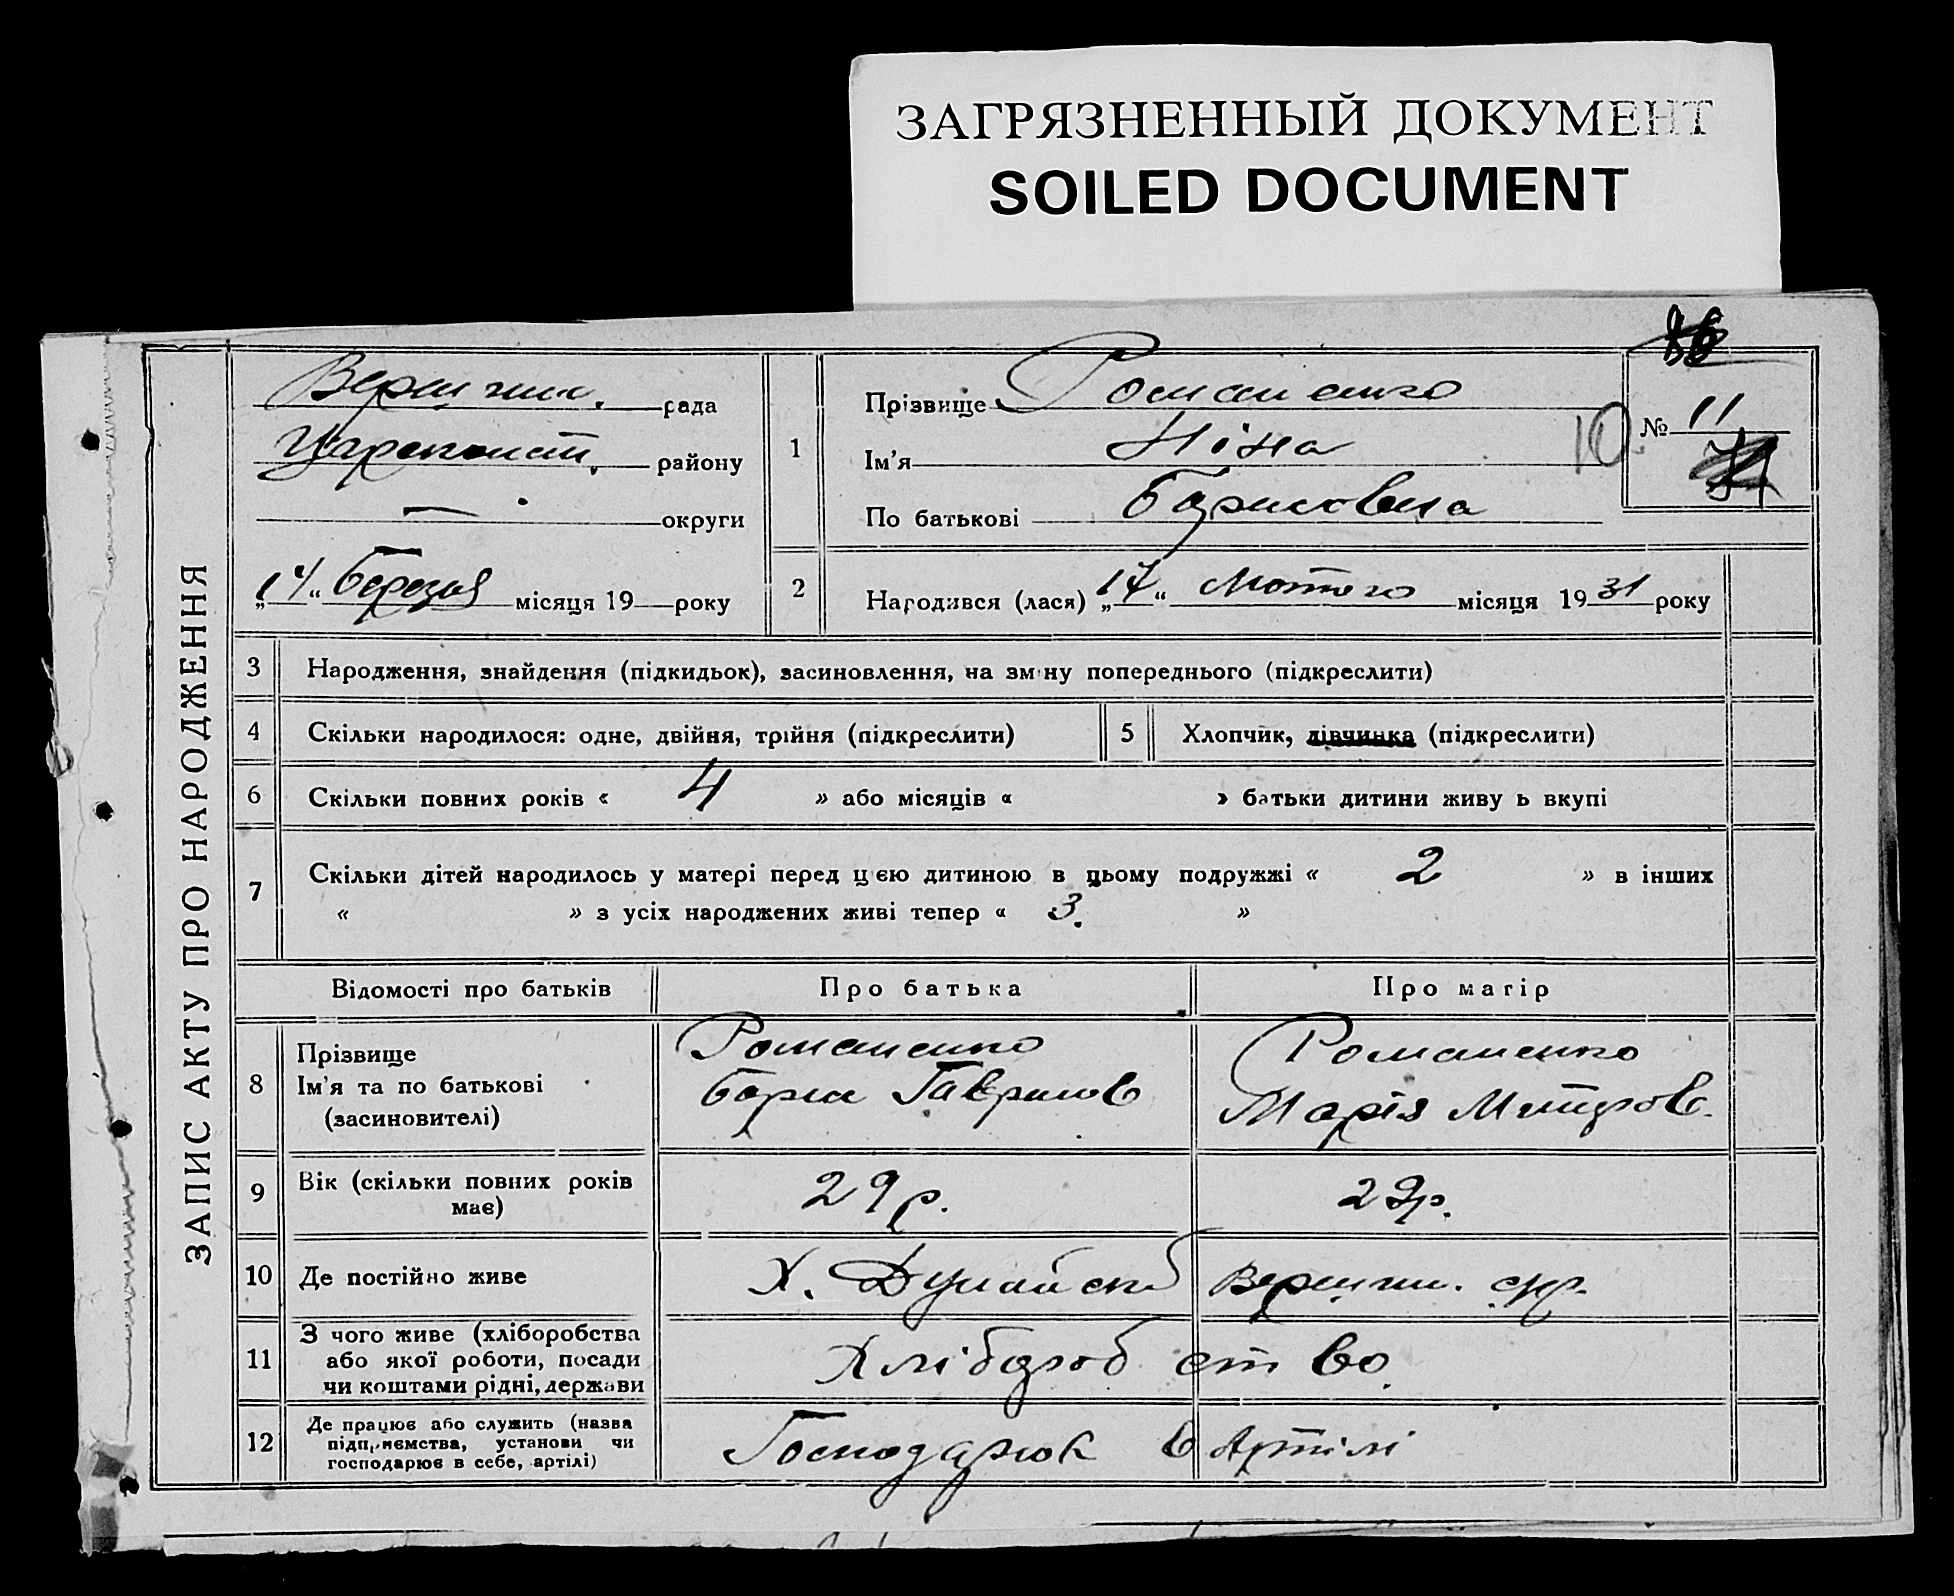 ЗАГРЯЗНЕННЫЙ ДОКУМЕНТ
SOILED DOCUMENT
ЗАПИС АКТУ ПРО НАРОДЖЕННЯ
рада
району
округи
„14“ березня місяця 19 року
1
Прізвище Романенко
Ім'я Ніна
По батькові Борисовна
10.
№ 11
2
Народився (лася) „17“ Лютого місяця 1931 року
3 Народження, знайдення (підкидьок), засиновлення, на зміну попереднього (підкреслити)
4 Скільки народилося: одне, двійня, трійня (підкреслити)
5 Хлопчик, дівчинка (підкреслити)
6 Скільки повних років « 4 » або місяців « » батьки дитини живуть вкупі
7 Скільки дітей народилось у матері перед цією дитиною в цьому подружжі « 2 » в інших
« » з усіх народжених живі тепер « 3. »
Відомості про батьків Про батька Про матір
8 Прізвище
Ім'я та по батькові
(засиновителі)
Романенко
Борис Гаврилов
Романенко
Марія Митров.
9 Вік (скільки повних років
має)
29 р.
29 р.
10 Де постійно живе
Х. Дунайськ
11 З чого живе (хліборобства
або якої роботи, посади
чи коштами рідні, держави
Хліборобство
12 Де працює або служить (назва
підприємства, установи чи
господарює в себе, артілі)
в Артілі